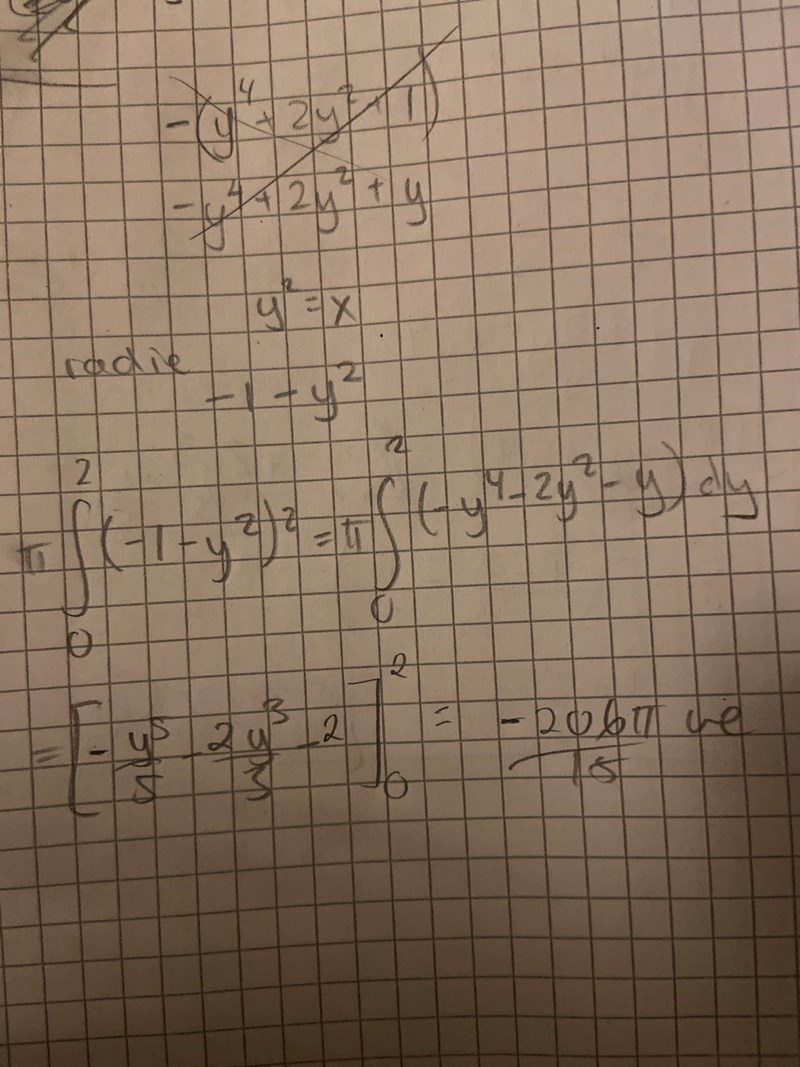 -(y⁴ + 2y² + 1)
-y⁴ + 2y² + y
y² = x
radie
-1 - y²
π ∫₀² (-1 - y²)² = π ∫₀² (-y⁴ - 2y² - y) dy
= [-y⁵/5 - 2y³/3 - 2]₀² = -206π/15 ve